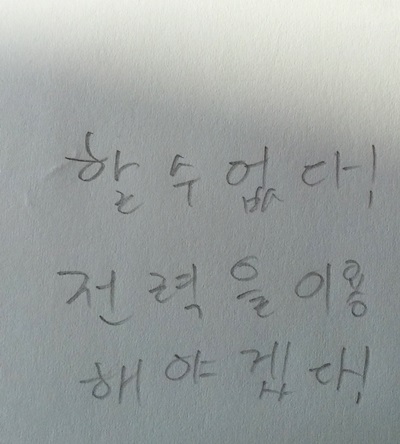 할 수 없다!
전력을 이용
해야겠다!